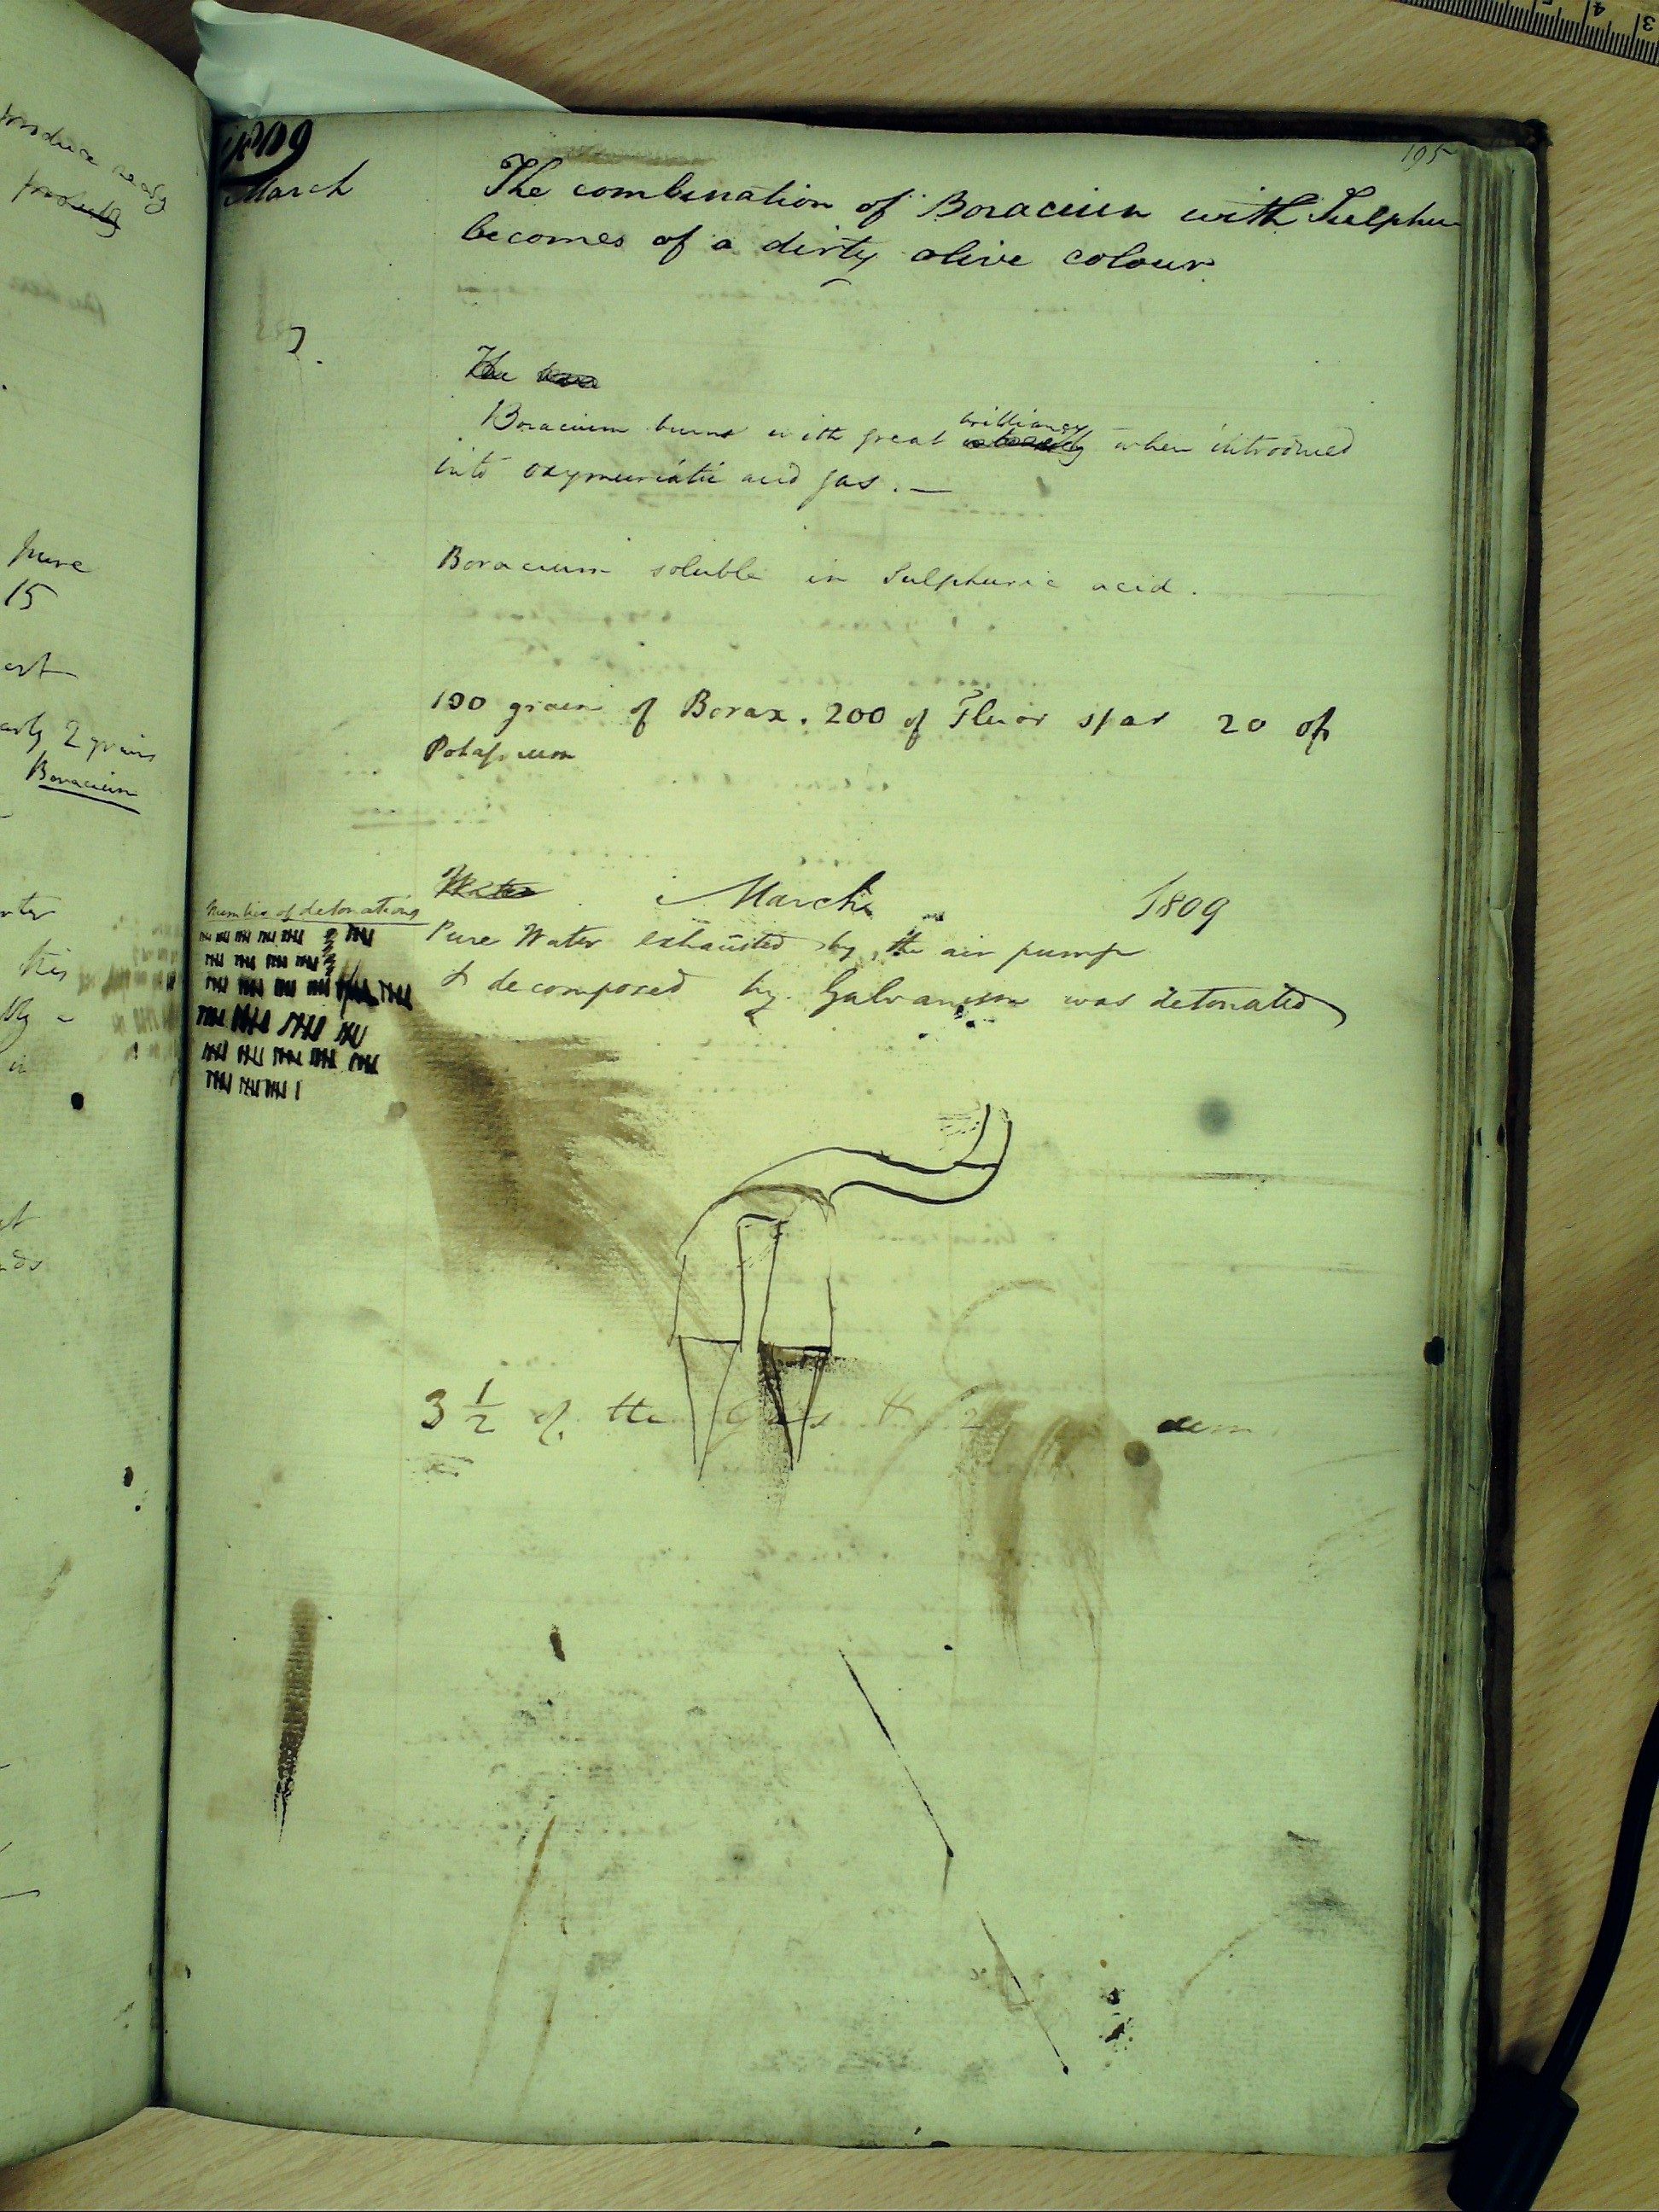 produce nearly
products
pure
15
2 grains
Boracium
195
1809
March
The combination of Boracium with Sulphu
becomes of a dirty olive colour.
7.
The
Boracium burns with great brilliancy when introduced
into oxymuriatic acid gas. —
Boracium soluble in Sulphuric acid.
100 grains of Borax. 200 of Fluor spar 20 of
Potassium
Water March 1809
Number of detonations
Pure Water exhausted by the air pump
& decomposed by Galvanism was detonated
3 1/2 of the Gas
3 4 5